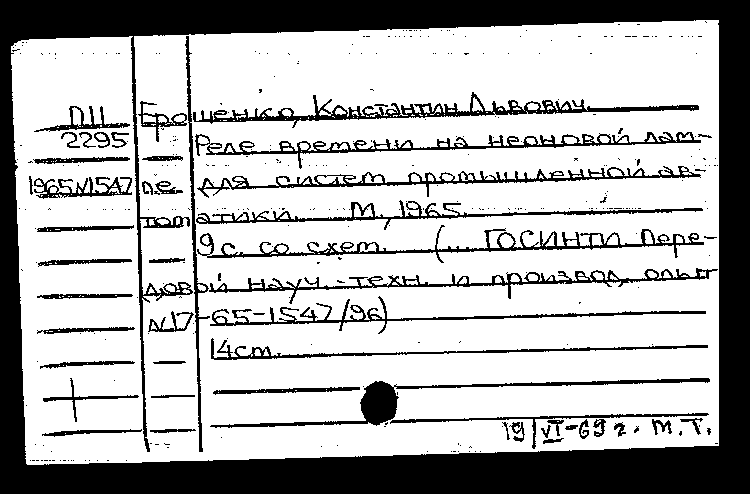 ПП Ерощенко, Константин Львович.
2295 Реле времени на неоновой лам-
1965N1547 пе для систем промышленной ав-
томатики. М., 1965.
9с. со схем. (... ГОСИНТИ Пере-
довой науч.-техн. и производ. опыт
N17-65-1547/96)
14cm.
19/VI-69 г. М.Т.